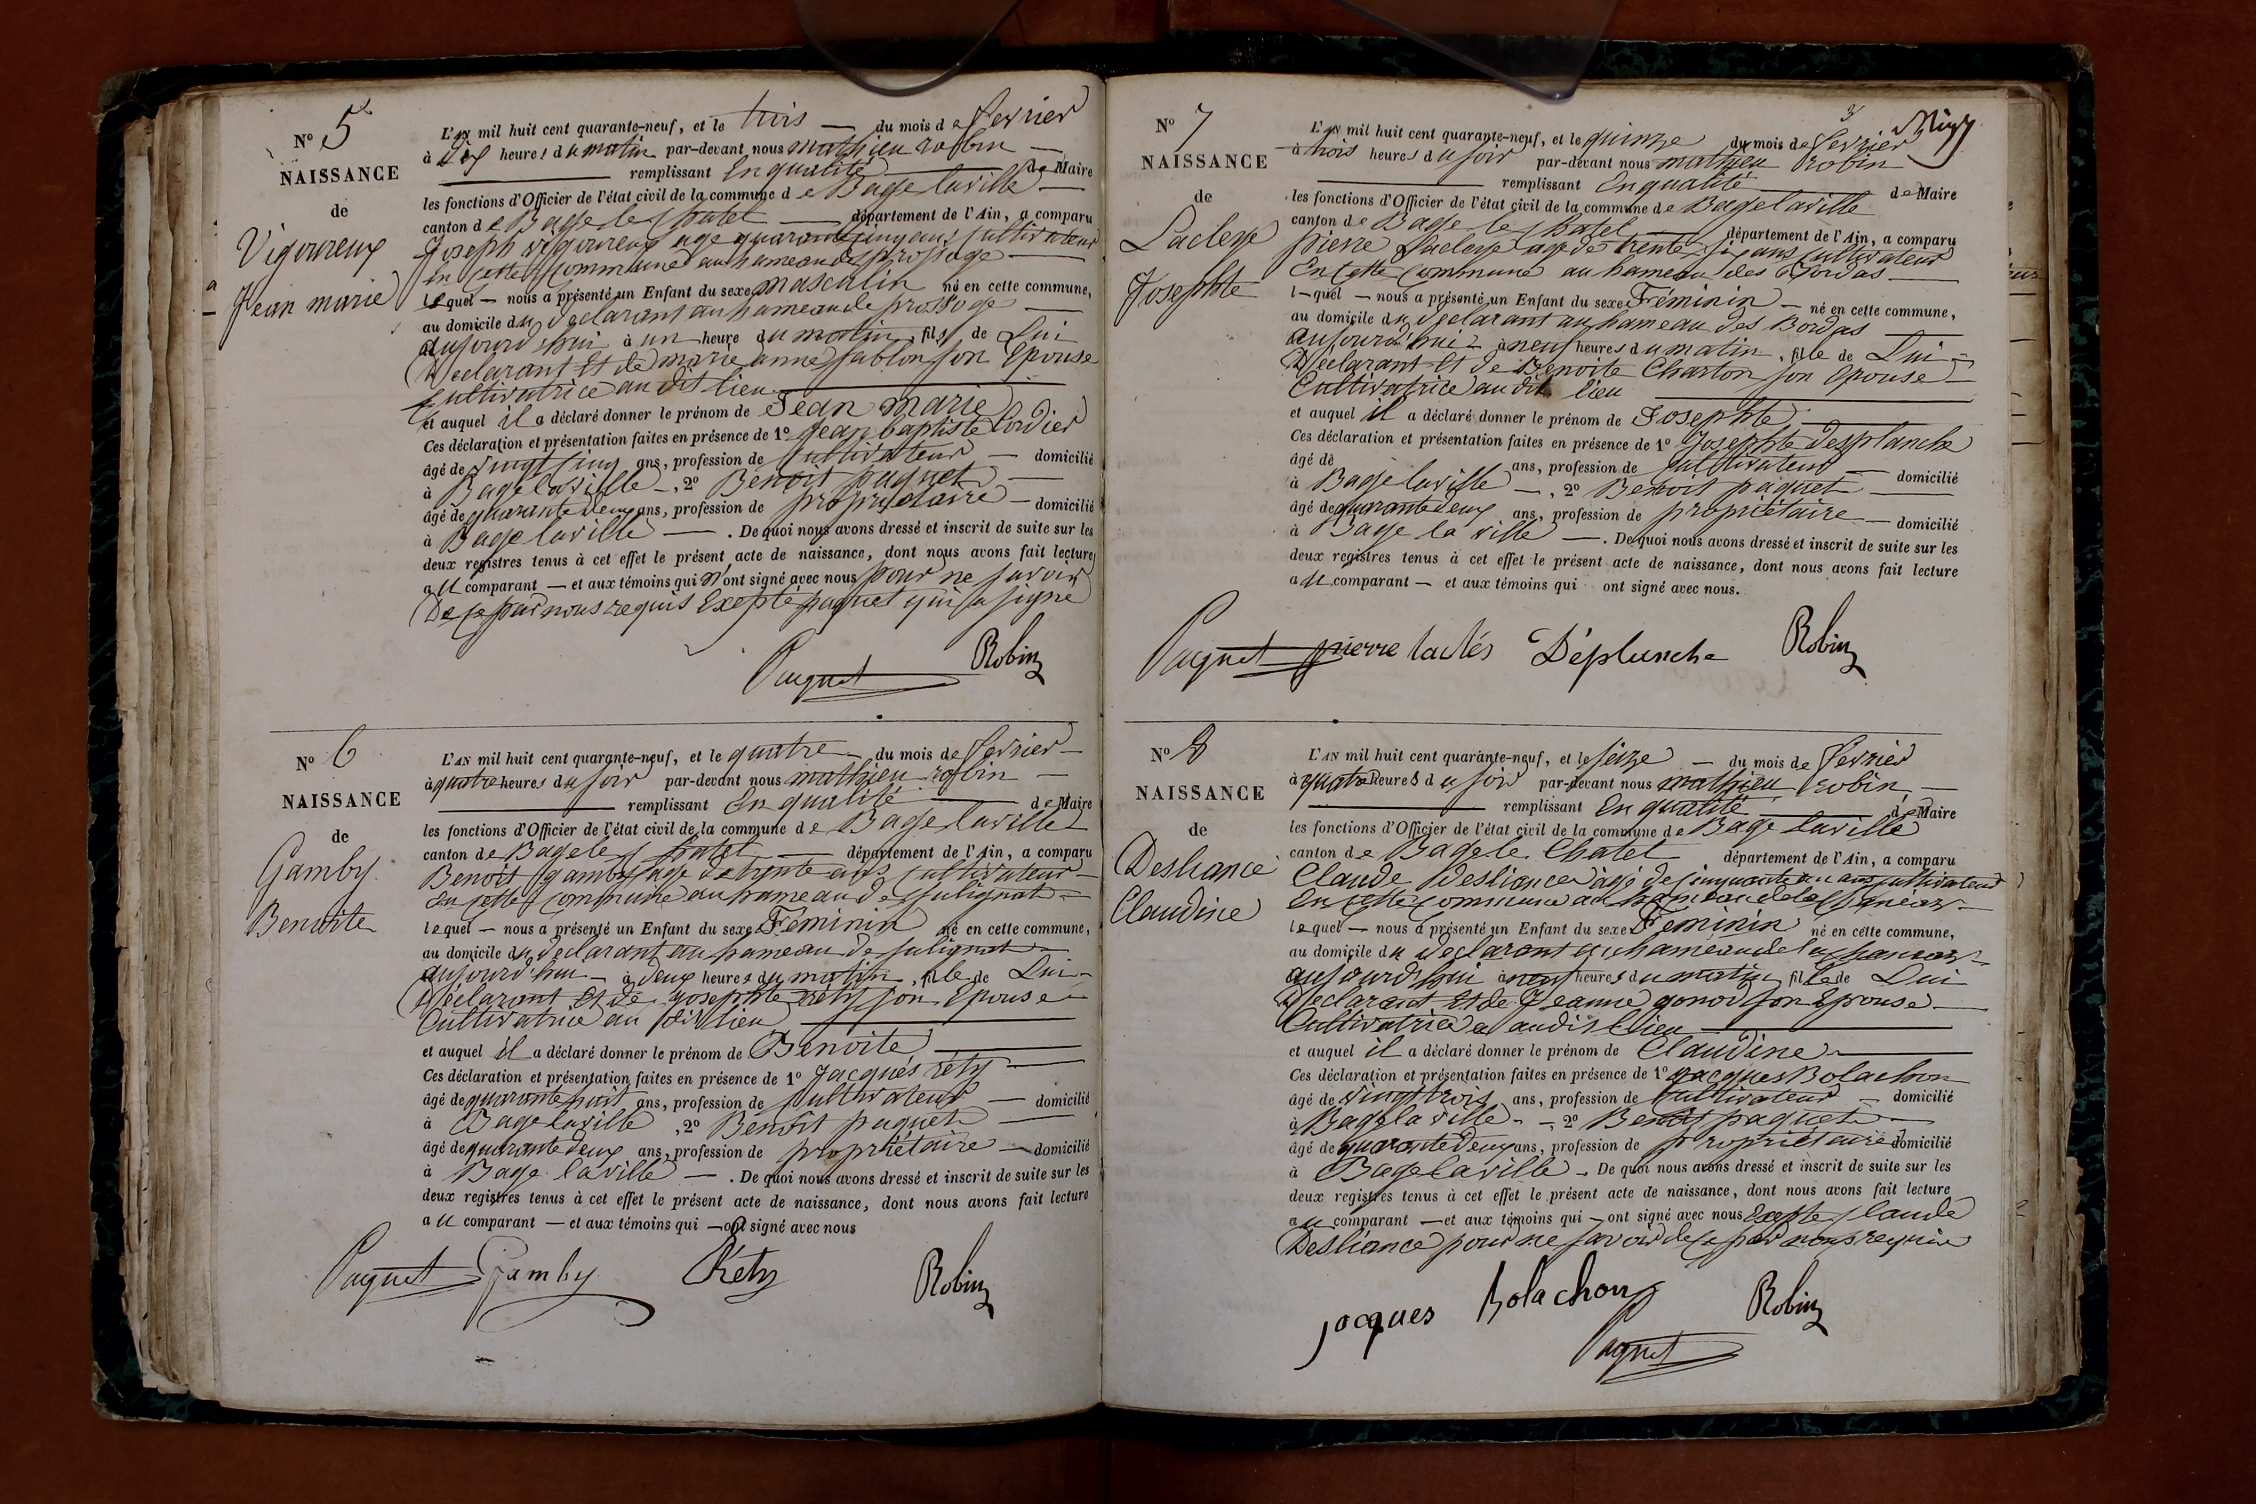 N° 5
NAISSANCE
de
Vigoureux
Jean marie
L'AN mil huit cent quarante-neuf, et le trois — du mois de fevrier
à dix heures du matin par-devant nous mathieu robin —
remplissant En qualité de Maire
les fonctions d'Officier de l'état civil de la commune de Bage laville
canton de Bage le Chatel — département de l'Ain, a comparu
Joseph vigoureux age quarante cinq ans Cultivateur
en Cette Commune au hameau de
lequel — nous a présenté un Enfant du sexe masculin né en cette commune,
au domicile du declarant au hameau de
aujourd'hui à un heure du matin, fils de Lui
Declarant Et de marie anne Sablon son Epouse
Cultivatrice au dit lieu
et auquel il a déclaré donner le prénom de Jean marie
Ces déclaration et présentation faites en présence de 1° Jean baptiste Cordier
âgé de vingt cinq ans, profession de Cultivateur — domicilié
à Bage laville —, 2° Benoit paquet —
âgé de quarante deux ans, profession de propriétaire — domicilié
à Bage laville — . De quoi nous avons dressé et inscrit de suite sur les
deux registres tenus à cet effet le présent acte de naissance, dont nous avons fait lecture
au comparant — et aux témoins qui n'ont signé avec nous pour ne savoir
De ce par nous requis Exepté paquet qui a signé
Paquet Robin
N° 6
NAISSANCE
de
Gamby
Benoite
L'AN mil huit cent quarante-neuf, et le quatre du mois de fevrier —
à quatre heures du soir par-devant nous mathieu robin —
remplissant En qualité de Maire
les fonctions d'Officier de l'état civil de la commune de Bage laville
canton de Bage le Chatel — département de l'Ain, a comparu
Benoit gamby age de trente ans Cultivateur —
en Cette Commune au hameau de Sulignat —
lequel — nous a présenté un Enfant du sexe Féminin né en cette commune,
au domicile du declarant au hameau de Sulignat —
aujourd'hui — à deux heures du matin, fille de Lui —
Déclarant Et de josephte réty son Epouse
Cultivatrice au dit lieu
et auquel il a déclaré donner le prénom de Benoite
Ces déclaration et présentation faites en présence de 1° Jacques réty —
âgé de quarante huit ans, profession de Cultivateur — domicilié
à Bage laville, 2° Benoit paquet —
âgé de quarante deux ans, profession de propriétaire — domicilié
à Bage laville — . De quoi nous avons dressé et inscrit de suite sur les
deux registres tenus à cet effet le présent acte de naissance, dont nous avons fait lecture
au comparant — et aux témoins qui — ont signé avec nous
Paquet Gamby Réty Robin
N° 7
NAISSANCE
de
Josephte
L'AN mil huit cent quarante-neuf, et le quinze du mois de fevrier
à trois heures du soir par-devant nous mathieu robin
remplissant En qualité de Maire
les fonctions d'Officier de l'état civil de la commune de Bage laville
canton de Bage le Chatel département de l'Ain, a comparu
pierre age de trente six ans Cultivateur
En Cette Commune au hameau des Bordas —
l—quel — nous a présenté un Enfant du sexe Féminin — né en cette commune,
au domicile du declarant au hameau des Bordas —
aujourd'hui — à neuf heures du matin, fille de Lui —
Declarant Et de Benoite Charton son Epouse —
Cultivatrice au dit lieu
et auquel il a déclaré donner le prénom de Josephte
Ces déclaration et présentation faites en présence de 1° Josephte Desplanche
âgé de ans, profession de Cultivateur — domicilié
à Bage laville —, 2° Benoit paquet —
âgé de quarante deux ans, profession de propriétaire — domicilié
à Bage la ville — . De quoi nous avons dressé et inscrit de suite sur les
deux registres tenus à cet effet le présent acte de naissance, dont nous avons fait lecture
au comparant — et aux témoins qui ont signé avec nous.
Paquet pierre Déplanche Robin
N° 8
NAISSANCE
de
Desliance
Claudine
L'AN mil huit cent quarante-neuf, et le seize — du mois de fevrier
à quatre heures du soir par-devant nous mathieu robin —
remplissant En qualité de Maire
les fonctions d'Officier de l'état civil de la commune de Bage laville
canton de Bage le Chatel département de l'Ain, a comparu
Claude Desliance agé de cinquante un ans cultivateur
En Cette Commune au hameau de la
lequel — nous a présenté un Enfant du sexe Féminin né en cette commune,
au domicile du declarant au hameau de la
aujourd'hui à neuf heures du matin, fille de Lui
Declarant Et de Jeanne gonod son Epouse —
Cultivatrice au dit lieu
et auquel il a déclaré donner le prénom de Claudine
Ces déclaration et présentation faites en présence de 1° jacques Bolachon
âgé de vingt trois ans, profession de Cultivateur — domicilié
à Bage la ville — 2° Benoit paquet —
âgé de quarante deux ans, profession de propriétaire domicilié
à Bage laville . De quoi nous avons dressé et inscrit de suite sur les
deux registres tenus à cet effet le présent acte de naissance, dont nous avons fait lecture
au comparant — et aux témoins qui — ont signé avec nous Exepte Claude
Desliance pour ne savoir de ce par nous requis
jacques Bolachon Robin
Paquet